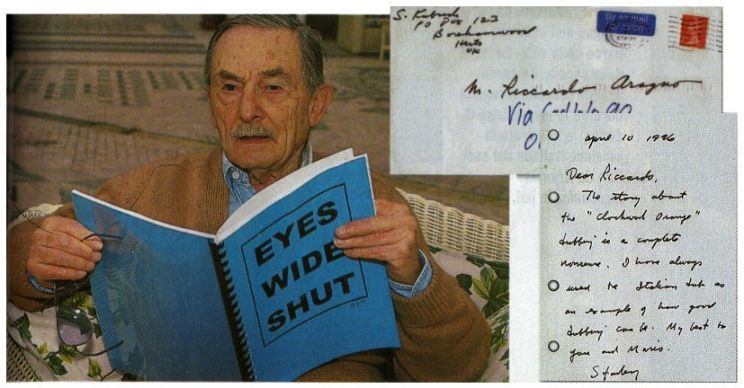 EYES
WIDE
SHUT
S. Kubrick
PO Box 123
Borehamwood
Herts
UK
By air mail
Mr. Riccardo Aragno
Via
April 10
Dear Riccardo,
The story about
the "Clockwork Orange"
dubbing is a complete
nonsense. I have always
used the Italian dub as
an example of how good
dubbing can be. My best to
you and
Stanley